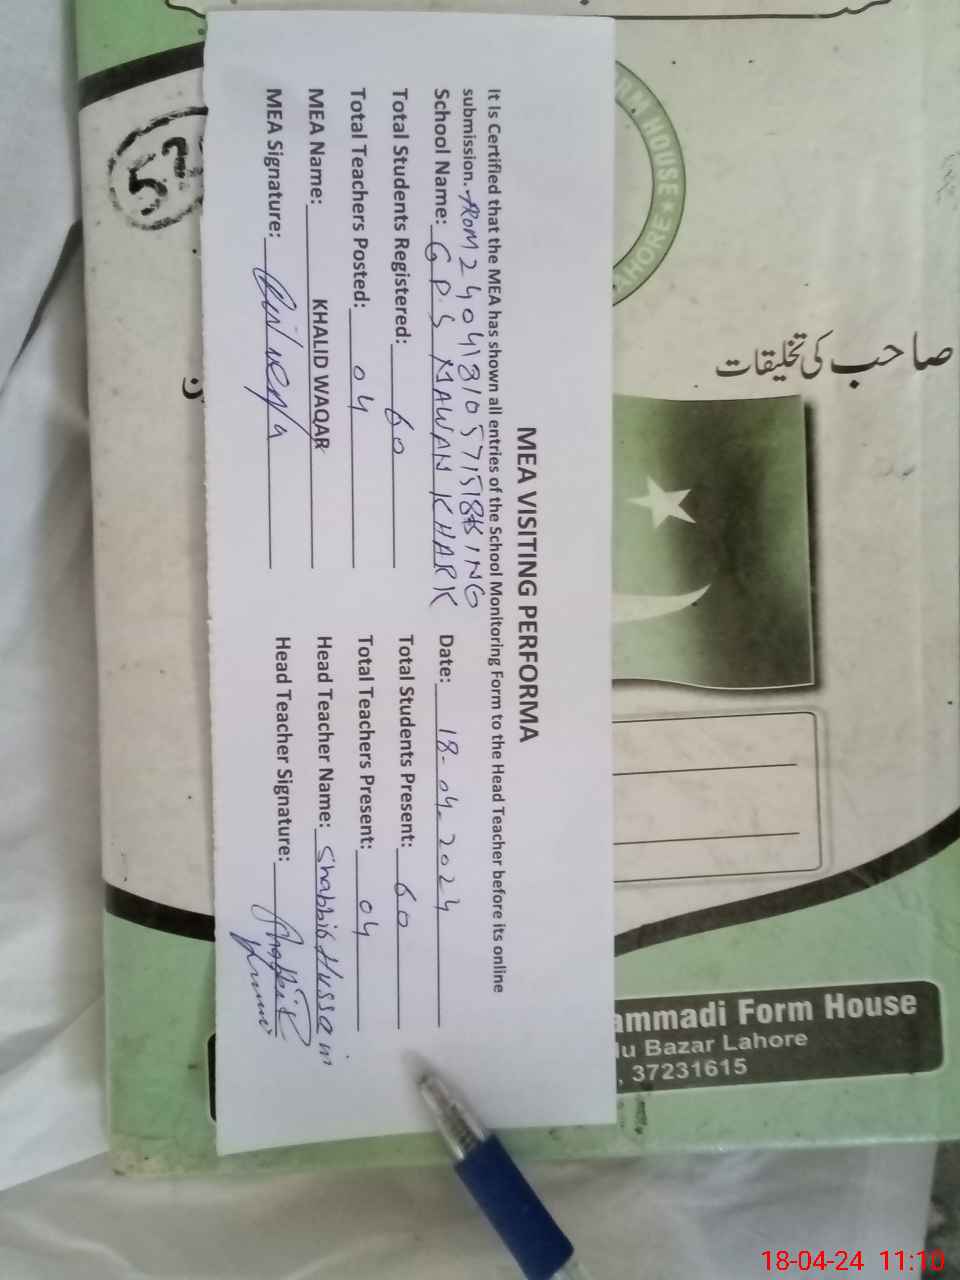 MEA VISITING PERFORMA
It Is Certified that the MEA has shown all entries of the School Monitoring Form to the Head Teacher before its online
submission.
School Name: G P S MAWAN KHARK Date: 18-04-2024
Total Students Registered: 60 Total Students Present: 60
Total Teachers Posted: 04 Total Teachers Present: 04
MEA Name: KHALID WAQAR Head Teacher Name: Shabbir Hussain
MEA Signature: Head Teacher Signature:
صاحب کی تخلیقات
ammadi Form House
du Bazar Lahore
, 37231615
18-04-24 11:10